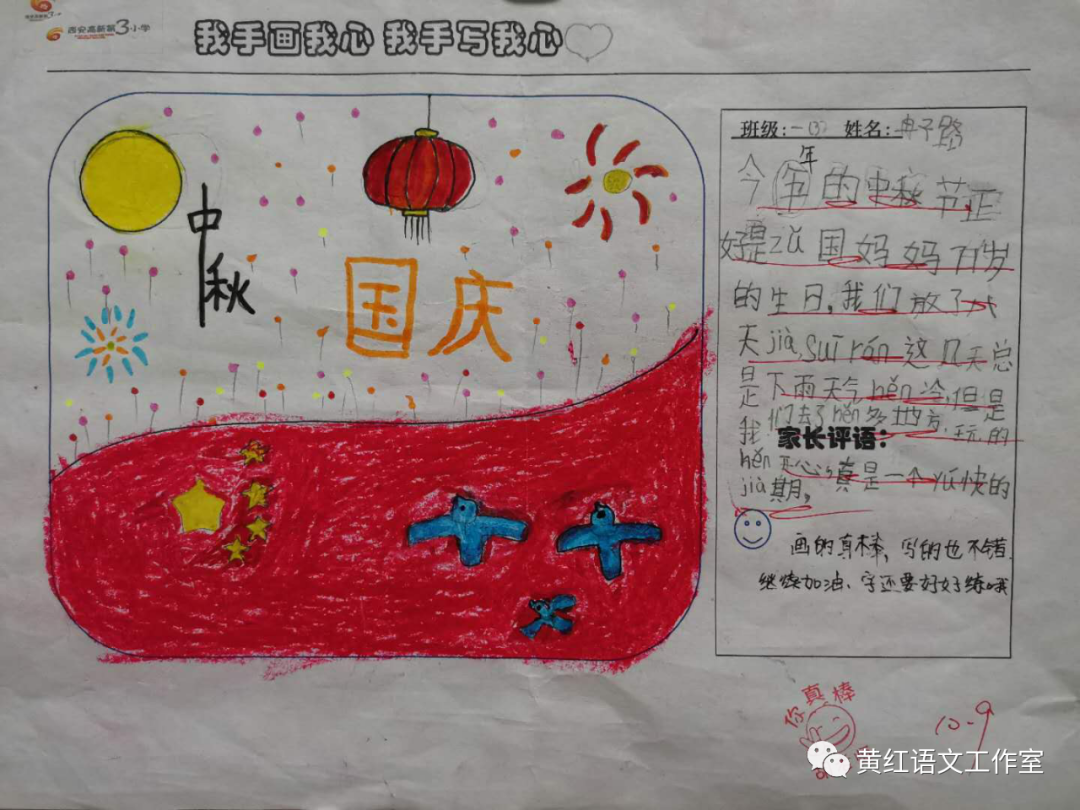 西安高新第3小学
我手画我心 我手写我心
中秋
国庆
班级：一（3） 姓名：冉子路
年
今年的中秋节正
好是zǔ国妈妈71岁
的生日，我们放了八
天jià，suī rán 这几天总
是下雨天气hěn冷，但是
我们去了hěn多地方，玩的
家长评语：
hěn开心，真是一个yú快的
jià期。
画的真棒，写的也不错，
继续加油、字还要好好练哦
你真棒
10-9
黄红语文工作室